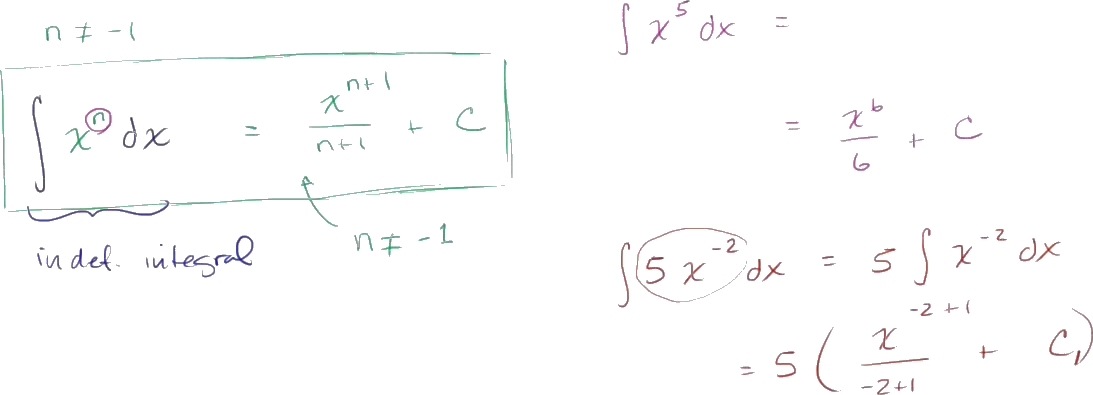 n ≠ -1
∫ xⁿ dx = xⁿ⁺¹/(n+1) + C
n ≠ -1
indef. integral
∫ x⁵ dx =
= x⁶/6 + C
∫ 5 x⁻² dx = 5 ∫ x⁻² dx
= 5 ( x⁻²⁺¹/(-2+1) + C₁)